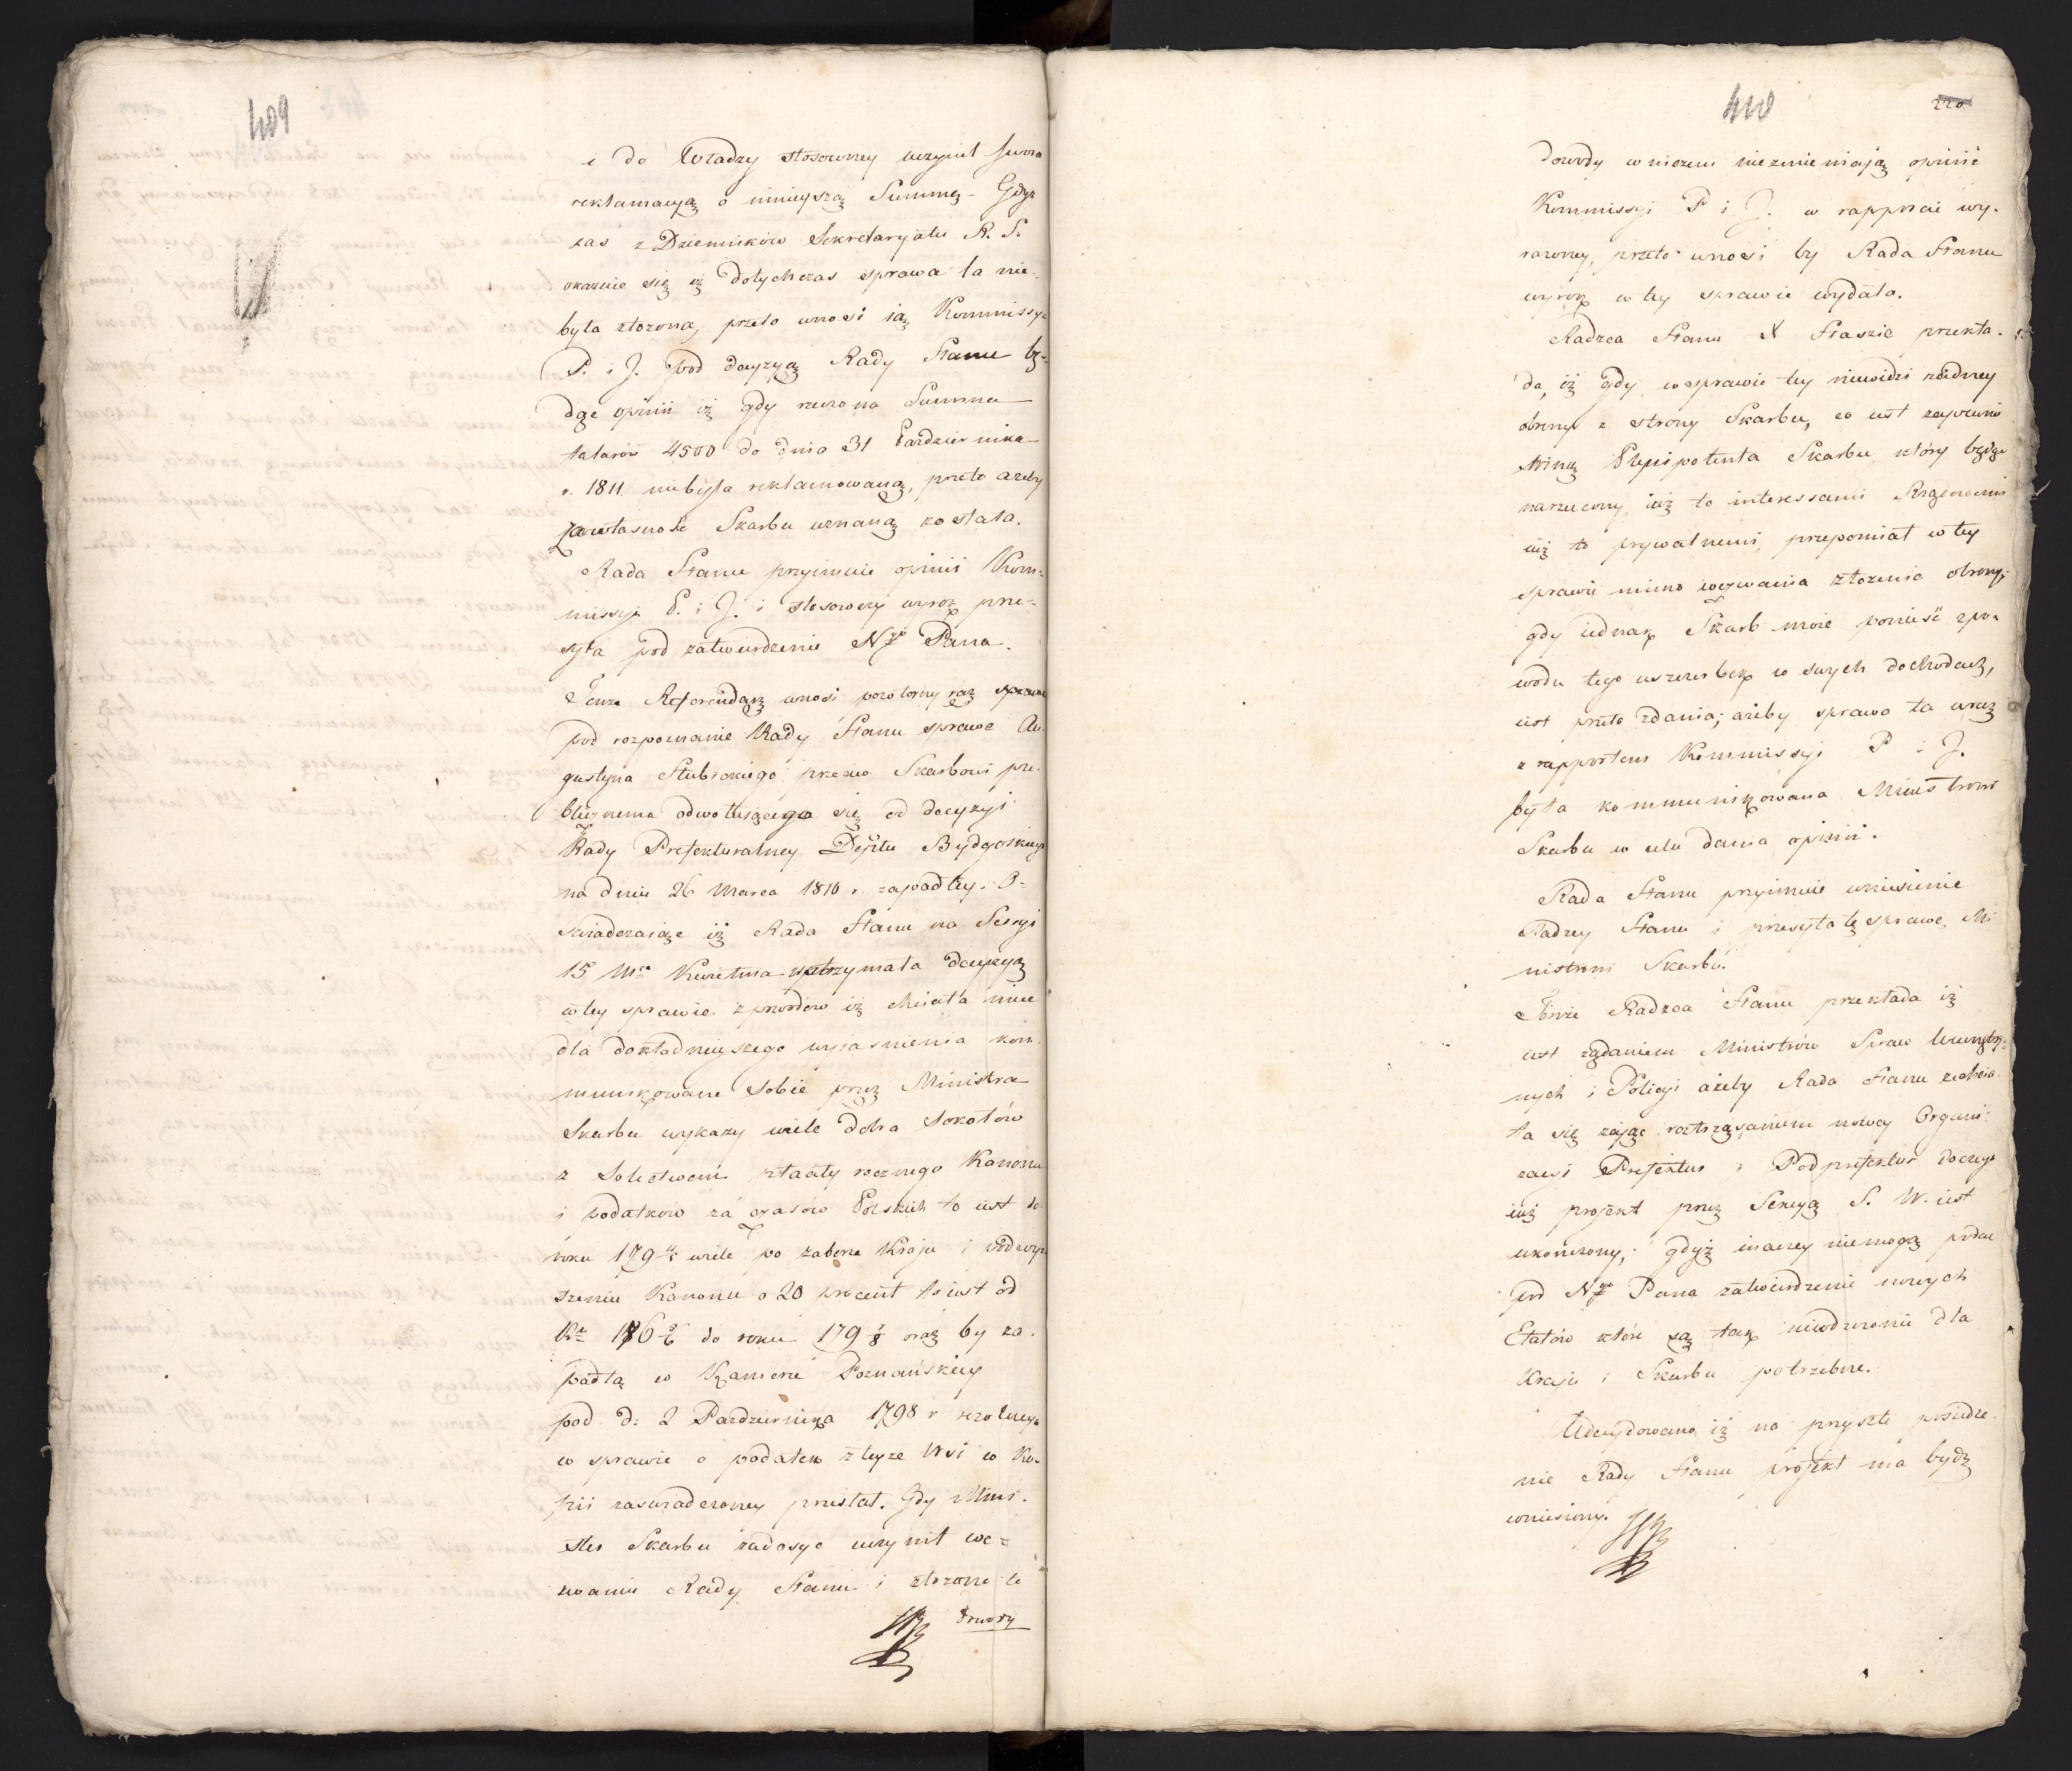 409
i do Władzy stosowney uczynił swoią
reklamacyą o ninieyszą Summę - Gdyż
zaś z Dzienników Sekretaryatu R. S.
okazuie się iż dotychczas sprawa ta nie
była złożona, przeto wnosi ią Kommissya
P. i J. pod decyzyą Rady Stanu bę-
dąc opinii iż gdy rzeczona Summa
talarów 4500 do dnia 31 Pazdziernika
r. 1811 niebyła reklamowaną, przeto azeby
za własność Skarbu uznaną została.
Rada Stanu przyimuie opinii Kom-
missyi P. i J. i stosowny wyrok prze-
syła pod zatwierdzenie Nygo Pana.
Tenże Referendarz wnosi powtórny raz
pod rozpoznanie Rady Stanu sprawę Au-
gustyna Słubickiego przeciw Skarbowi pu-
blicznemu odwołuiącego się od decyzyi
Rady Prefekturalney Depttu Bydgoskiego
na dniu 26 Marca 1810 r. zapadłey. O-
świadczaiąc iż Rada Stanu na Sessyi
15 Mca Kwietnia wstrzymała decyzyą
w tey sprawie z powodów iż chciała mieć
dla dokładnieyszego wyiasnienia kom-
munikowane sobie przez Ministra
Skarbu wykazy wiele dobra Sokołów
z Solectwem płaciły rocznego Kanonu
i podatków za czasów Polskich to iest do
roku 179 4/5 wiele po zaborze Kraju i podwyz-
szeniu Kanonu o 20 procent to iest od
Rs 179 5/6 do roku 179 7/8 oraz by za-
padłą w Kamerze Poznańskiey
pod d: 2 Pazdziernika 1798 r rezolucyę
w sprawie o podatek z teyże Wsi w Ko-
pii zaswiadczoney przesłał. Gdy Mini-
ster Skarbu zadosyc uczynił we-
zwaniu Rady Stanu i złożone te
dowody
410
220
dowody w niczem niezmieniaią opinii
Kommissyi P i J. w rapporcie wy-
razoney, przeto wnosi by Rada Stanu
wyrok w tey sprawie wydała.
Radzca Stanu X Staszic przekła-
da, iż gdy w sprawie tey niewidzi żadney
obrony z strony Skarbu, co iest zapewne
winą Plenipotenta Skarbu, który będąc
narzucony, iuż to interessami Rządowemi
iuż to prywatnemi, przepomniał w tey
sprawie mimo wezwania złożenia obrony;
gdy iednak Skarb może ponieść z po-
wodu tego uszczerbek w swych dochodach,
iest przeto zdania; ażeby sprawa ta wraz
z rapportem Kommissyi P i J.
była kommunikowana Ministrowi
Skarbu w celu dania opinii.
Rada Stanu przyimuie wniesienie
Radzcy Stanu i przesyła tę sprawę Mi-
nistrowi Skarbu.
Tenże Radzca Stanu przekłada iż
iest żądaniem Ministrów Spraw Wewnętrz-
nych i Policyi ażeby Rada Stanu zechcia-
ła się zaiąć roztrząsaniem nowey Organi-
zacyi Prefektur i Podprefektur do czego
iuż projekt przez Sekcyą S. W. iest
ukończony; gdyż inaczey niemogą podać
pod Nygo Pana zatwierdzenie nowych
Etatów które są tak nieodzownie dla
Kraju i Skarbu potrzebne.
Udecydowano iż na przyszłe posiedze-
nie Rady Stanu projekt ma bydź
wniesiony.